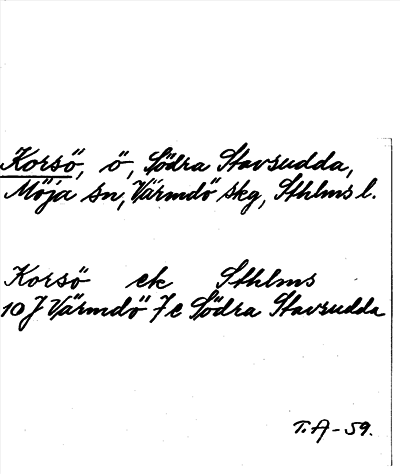 Korsö, ö, Södra Stavsudda,
Möja sn, Värmdö skg, Sthlms l.
Korsö ek Sthlms
10 J Värmdö 7 e Södra Stavsudda
T.A-59.